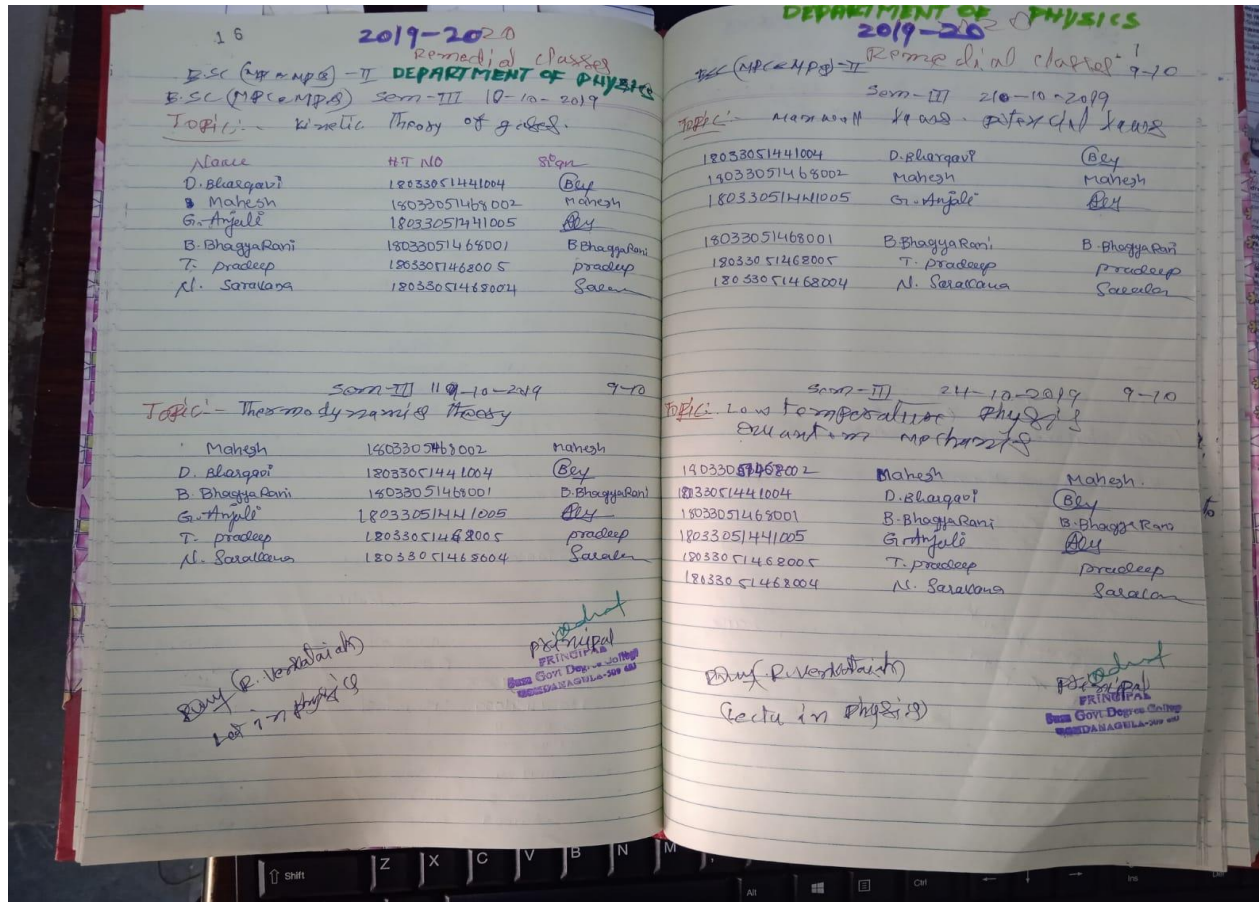 16
2019-2020
Remedial classes
B.SC (MPC & MPCS) -II DEPARTMENT OF PHYSICS
B.SC (MPC & MPCS) Sem-III 10-10-2019
Topic:- Kinetic Theory of gases.
Name HT NO Sign
D. Bhargavi 18033051441004
Mahesh 18033051468002 Mahesh
G. Anjali 18033051441005
B. BhagyaRani 18033051468001 B BhagyaRani
T. pradeep 18033051468005 pradeep
N. Saravana 18033051468004
Sem-III 11-10-2019 9-10
Topic:- Thermodynamics Theory
Mahesh 18033051468002 Mahesh
D. Bhargavi 18033051441004
B. BhagyaRani 18033051468001 B. BhagyaRani
G. Anjali 18033051441005
T. pradeep 18033051468005 pradeep
N. Saravana 18033051468004
(R. Venkataiah)
Lect in physics
principal
PRINCIPAL
Govt Degree College
DEPARTMENT OF PHYSICS
2019-20
Remedial classes
BSC (MPC & MPCS)-II 9-10
Sem-III 10-2019
Topic:- Maxwell
18033051441004 D. Bhargavi
18033051468002 Mahesh Mahesh
18033051441005 G. Anjali
18033051468001 B.BhagyaRani B. BhagyaRani
18033051468005 T. pradeep pradeep
18033051468004 N. Saravana
Sem-III 24-10-2019 9-10
Topic: Low temperature Physics
Quantum mechanics
18033051468002 Mahesh Mahesh.
18033051441004 D. Bhargavi
18033051468001 B. BhagyaRani B. BhagyaRani
18033051441005 G. Anjali
18033051468005 T. pradeep pradeep
18033051468004 N. Saravana
(R. Venkataiah)
(Lectu in Physics)
principal
PRINCIPAL
Govt. Degree College
Shift Z X C V B N M
Alt Ctrl Ins